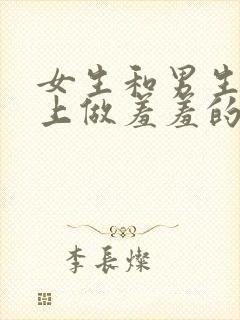 女生和男生
上做羞羞的
李長燦